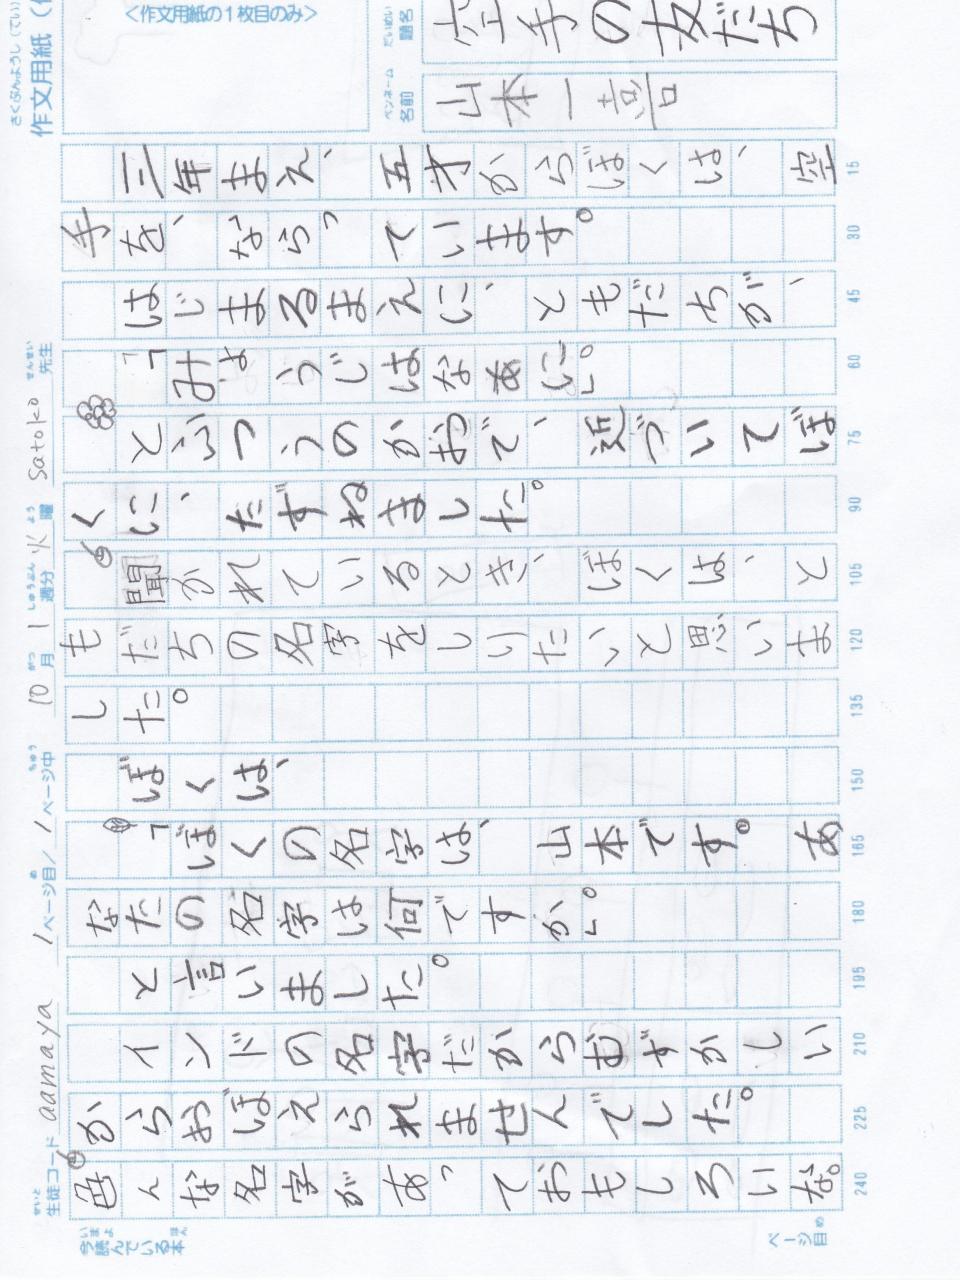 さくぶんようし
作文用紙
＜作文用紙の１枚目のみ＞
だいめい
題名
空手の友だち
ペンネーム
名前
山本一喜
せいと
生徒コード aamaya
め ちゅう
1 ページ目/ 1 ページ中
がつ しゅうぶん よう
10 月 1 週分 火 曜
せんせい
satoko 先生
三年まえ、五才からぼくは、空
手を、ならっています。
はじまるまえに、ともだちが、
「みょうじはなあに。」
とふつうのかおで、近づいてぼ
くに、たずねました。
聞かれているとき、ぼくは、と
もだちの名字をしりたいと思いま
した。
ぼくは、
「ぼくの名字は、山本です。あ
なたの名字は何ですか。」
と言いました。
インドの名字だからむずかしい
からおぼえられませんでした。
色んな名字があっておもしろいな。
15
30
45
60
75
90
105
120
135
150
165
180
195
210
225
240
いま よ ほん
今読んでいる本
め
ページ目